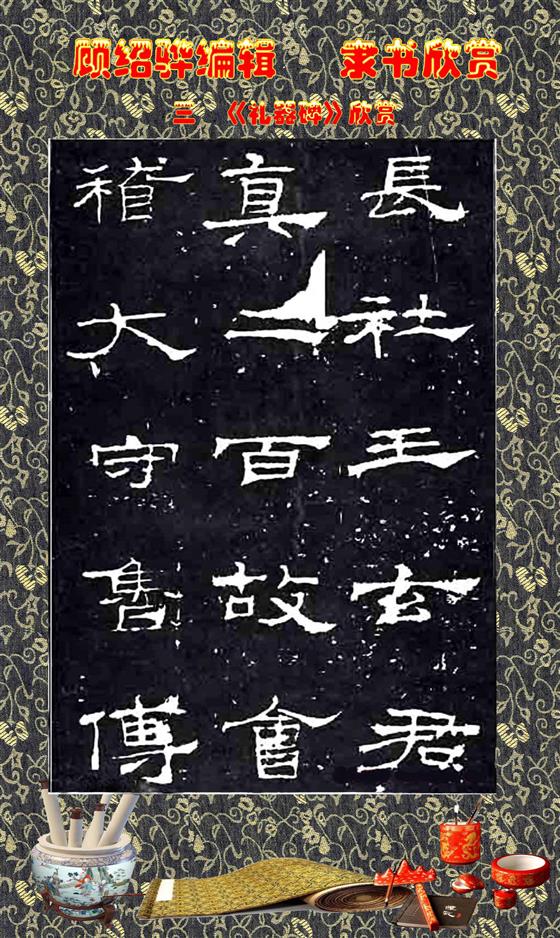 顾绍骅编辑 隶书欣赏
三 《礼器碑》欣赏
長社王玄君
真二百故會
稽大守魯傅